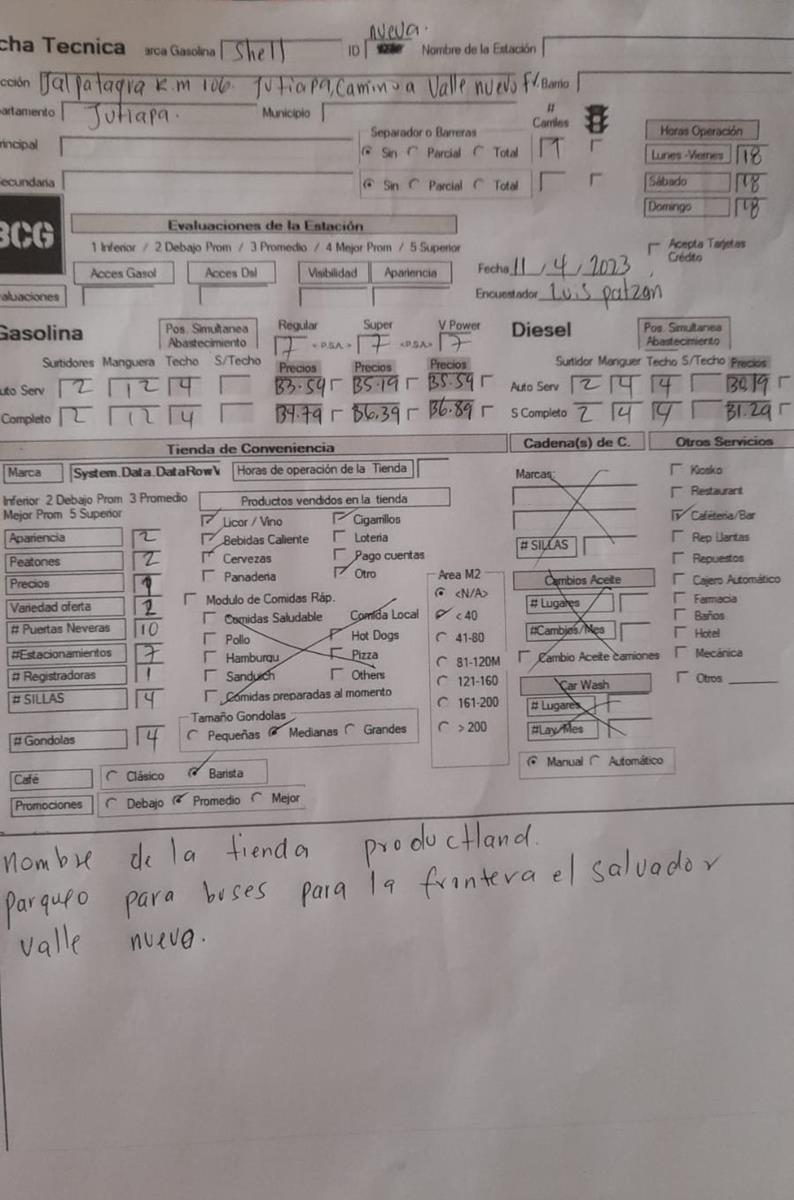 cha Tecnica arca Gasolina Shell ID nueva. Nombre de la Estación
cción Jalpatagua K.m 106. Jutiapa, Camino a Valle nuevo Barrio
artamento Jutiapa. Municipio
# Carriles
Separador o Barreras
Horas Operación
rincipal Sin Parcial Total 1 Lunes -Viernes 18
ecundaria Sin Parcial Total Sábado 18
Domingo 18
BCG
Evaluaciones de la Estación
1 Inferior / 2 Debajo Prom / 3 Promedio / 4 Mejor Prom / 5 Superior
Acepta Tarjetas Crédito
Acces Gasol Acces Dsl Visibilidad Apariencia Fecha 11 / 4 / 2023
aluaciones Encuestador Luis patzan
Gasolina Pos. Simultanea Abastecimiento Regular Super V Power Diesel Pos. Simultanea Abastecimiento
7 < P.S.A. > 7 <P.S.A> 7
Surtidores Manguera Techo S/Techo Precios Precios Precios Surtidor Manguer Techo S/Techo Precios
uto Serv 2 12 4 33.59 35.19 35.59 Auto Serv 2 4 4 30.19
Completo 2 12 4 34.79 36.39 36.89 S Completo 2 4 4 31.29
Tienda de Conveniencia Cadena(s) de C. Otros Servicios
Marca System.Data.DataRowV Horas de operación de la Tienda Marcas: Kiosko
Inferior 2 Debajo Prom 3 Promedio Productos vendidos en la tienda Restaurant
Mejor Prom 5 Superior Licor / Vino Cigarrillos Cafeteria/Bar
Apariencia 2 Bebidas Caliente Loteria # SILLAS Rep Llantas
Peatones 2 Cervezas Pago cuentas Repuestos
Precios Panaderia Otro Area M2 Cambios Aceite Cajero Automático
Variedad oferta 2 Modulo de Comidas Ráp. <N/A> # Lugares Farmacia
# Puertas Neveras 10 Comidas Saludable Comida Local < 40 Baños
#Estacionamientos 7 Pollo Hot Dogs 41-80 #Cambios/Mes Hotel
# Registradoras 1 Hamburgu Pizza 81-120M Cambio Aceite camiones Mecánica
# SILLAS 4 Sandwich Others 121-160 Car Wash Otros
Comidas preparadas al momento 161-200 # Lugares
Tamaño Gondolas
# Gondolas 4 Pequeñas Medianas Grandes > 200 #Lav/Mes
Café Clásico Barista Manual Automático
Promociones Debajo Promedio Mejor
nombre de la tienda productland.
parqueo para buses para la frontera el salvador
valle nuevo.